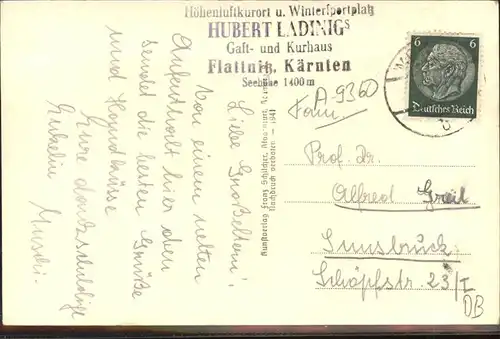 Höhenluftkurort u. Wintersportplatz
HUBERT LADINIGS
Gast- und Kurhaus
Flattnitz, Kärnten
Seehöhe 1400 m
A-9360
6 6
Deutsches Reich
Liebe Großeltern!
Von einem netten
Aufenthalt hier oben
sendet die besten Grüße
und Handküsse
Eure dankschuldige
Enkelin
Kunstverlag Franz Schilcher, Klagenfurt
Nachdruck verboten - 1941
Fam
Prof. Dr.
Alfred Greil
Innsbruck
Schöpfstr. 23/I
DB